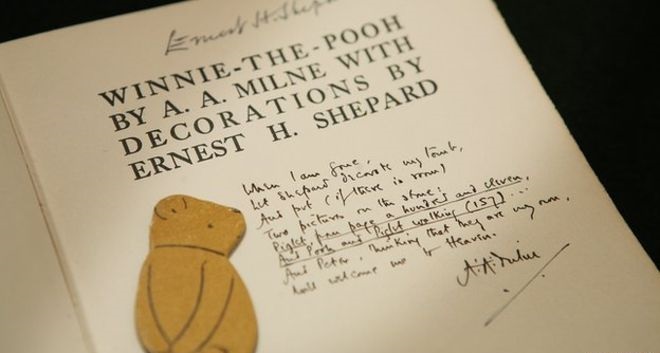 Ernest H. Shepard
WINNIE-THE-POOH
BY A. A. MILNE WITH
DECORATIONS BY
ERNEST H. SHEPARD
When I am gone,
Let Shepard decorate my tomb,
And put (if there is room)
Two pictures on the stone:
Piglet from page a hundred and eleven,
And Pooh and Piglet walking (157)...
And Peter, thinking that they are my own,
Will welcome me to Heaven.
A. A. Milne